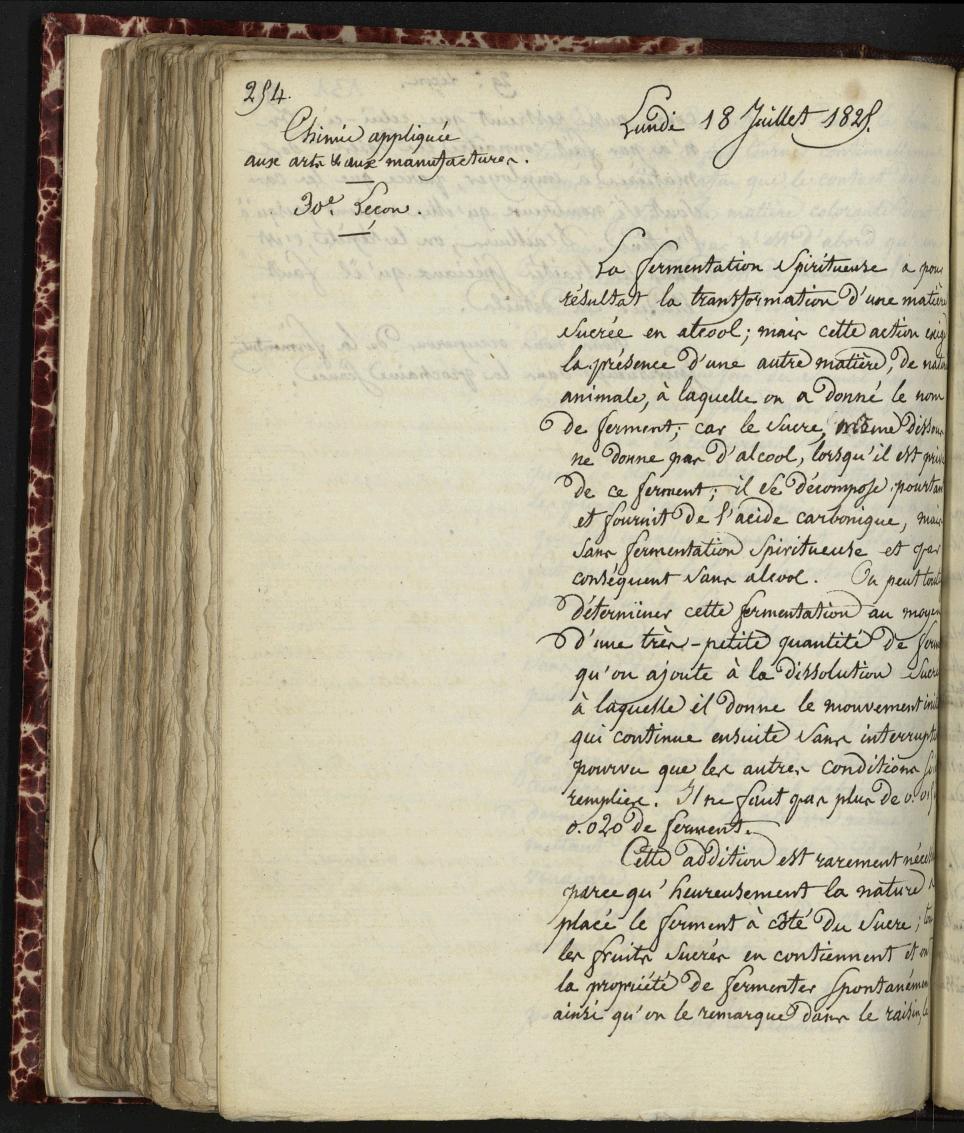 254.
Lundi 18 Juillet 1825.
Chimie appliquée
aux arts & aux manufactures.
30e. Leçon.
La fermentation spiritueuse a pour
résultat la transformation d'une matière
sucrée en alcool; mais cette action exig
la présence d'une autre matière, de natu
animale, à laquelle on a donné le nom
de ferment; car le sucre, même dissou
ne donne pas d'alcool, lorsqu'il est privé
de ce ferment; il se décompose pourtan
et fournit de l'acide carbonique, mais
sans fermentation spiritueuse et par
conséquent sans alcool. On peut tout
déterminer cette fermentation au moyen
d'une très-petite quantité de ferm
qu'on ajoute à la dissolution sucré
à laquelle il donne le mouvement initi
qui continue ensuite sans interrupti
pourvu que les autres conditions soi
remplies. Il ne faut pas plus de 0.015
0.020 de ferment.
Cette addition est rarement néces
parce qu'heureusement la nature a
placé le ferment à côté du sucre; tou
les fruits sucrés en contiennent et ont
la propriété de fermenter spontanémen
ainsi qu'on le remarque dans le raisin, le